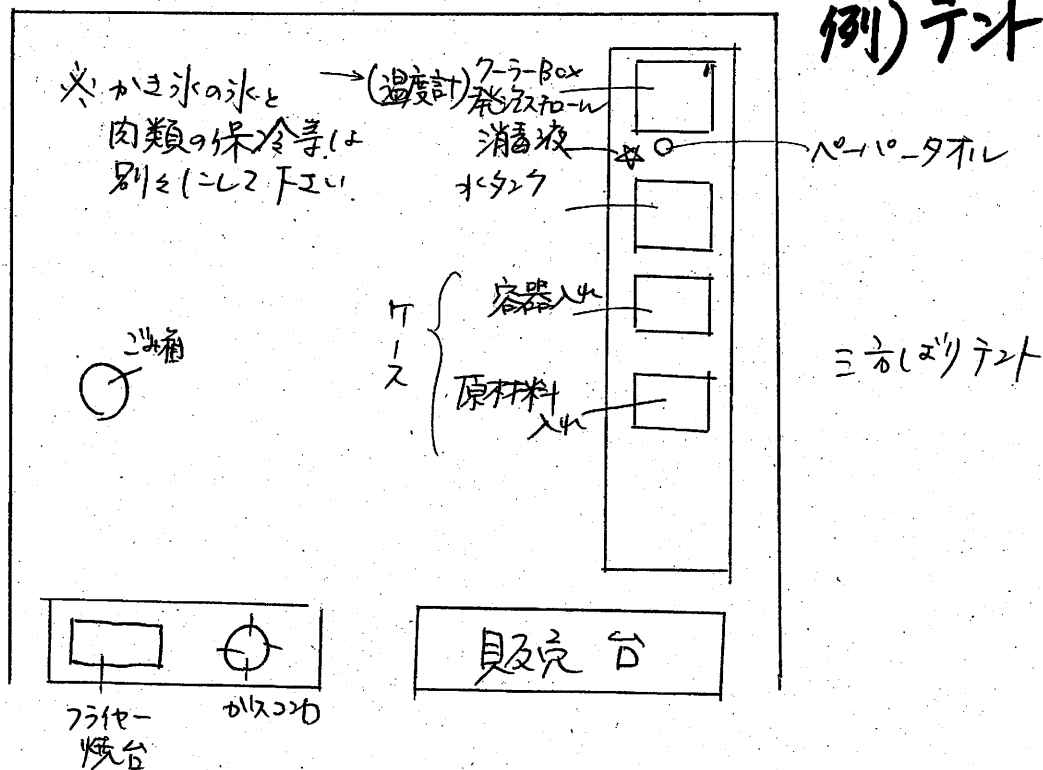 例)テント
※かき氷の氷と
肉類の保冷等は
別々にして下さい
→(温度計)
クーラーBox
発泡スチロール
消毒液
ペーパータオル
水タンク
ケース
容器入れ
原材料
入れ
ごみ箱
三方しばりテント
販売台
フライヤー
焼台
ガスコンロ